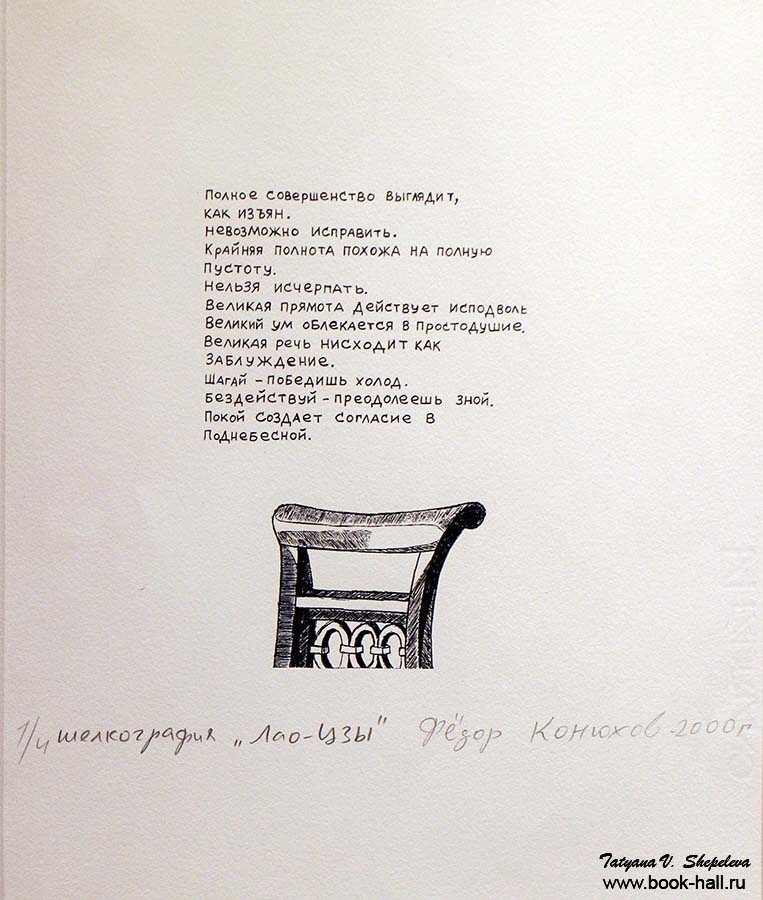 Полное совершенство выглядит,
как изъян.
Невозможно исправить.
Крайняя полнота похожа на полную
пустоту.
Нельзя исчерпать.
Великая прямота действует исподволь
Великий ум облекается в простодушие.
Великая речь нисходит как
заблуждение.
Шагай – победишь холод.
Бездействуй – преодолеешь зной.
Покой создает согласие в
Поднебесной.
1/ч шелкография „Лао-Цзы" Фёдор Конюхов. 2000г
Tatyana V. Shepeleva
www.book-hall.ru